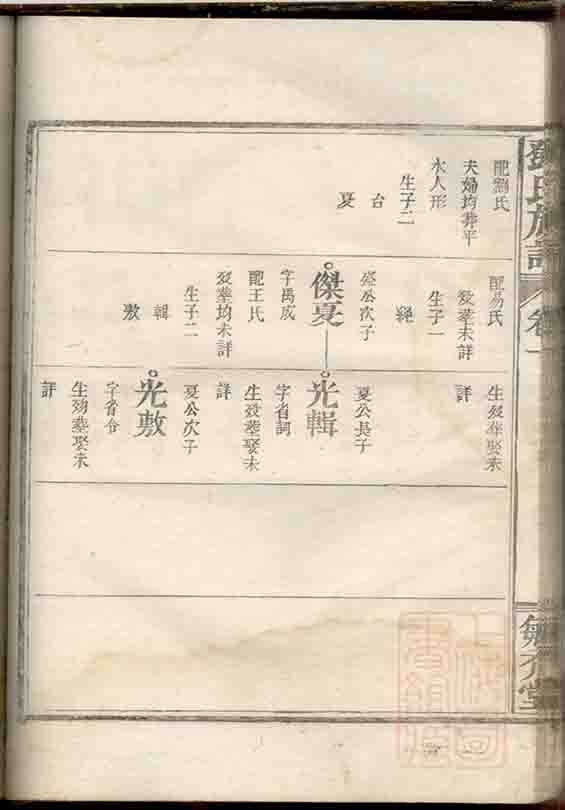 氏族譜
卷一
配劉氏
夫婦均葬平
水人形
生子二
台
夏
配易氏
歿葬未詳
生子一
傑夏
公次子
字禹成
配王氏
歿葬均未詳
生子二
輯
敷
生歿葬娶未
詳
光輯
夏公長子
字省詞
生歿葬娶未
詳
光敷
夏公次子
字省令
生歿葬娶未
詳
堂